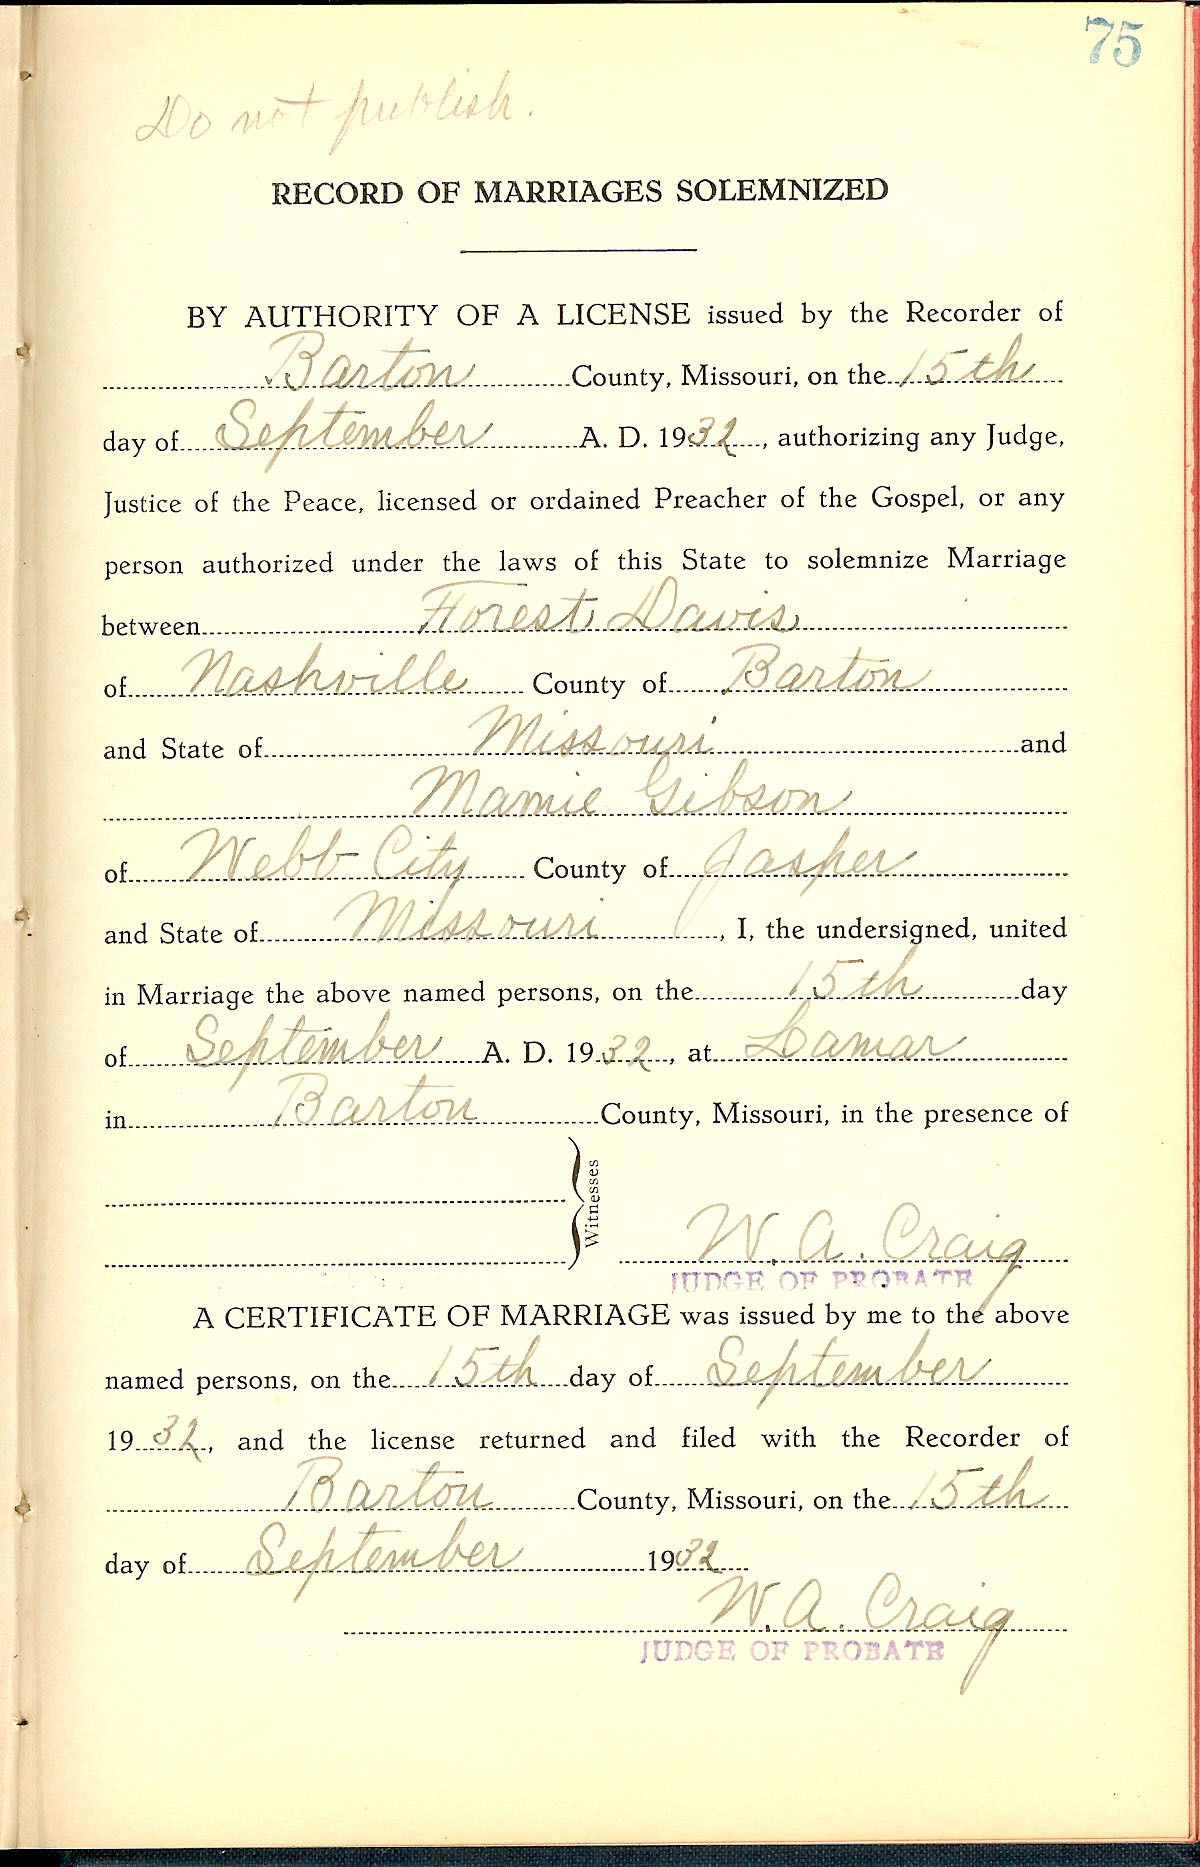 75
Do not publish.
RECORD OF MARRIAGES SOLEMNIZED
BY AUTHORITY OF A LICENSE issued by the Recorder of
Barton County, Missouri, on the 15th
day of September A. D. 1932, authorizing any Judge,
Justice of the Peace, licensed or ordained Preacher of the Gospel, or any
person authorized under the laws of this State to solemnize Marriage
between Forest Davis
of Nashville County of Barton
and State of Missouri and
Mamie Gibson
of Webb City County of Jasper
and State of Missouri, I, the undersigned, united
in Marriage the above named persons, on the 15th day
of September A. D. 1932, at Lamar
in Barton County, Missouri, in the presence of
Witnesses
W. A. Craig
JUDGE OF PROBATE
A CERTIFICATE OF MARRIAGE was issued by me to the above
named persons, on the 15th day of September
1932, and the license returned and filed with the Recorder of
Barton County, Missouri, on the 15th
day of September 1932
W. A. Craig
JUDGE OF PROBATE